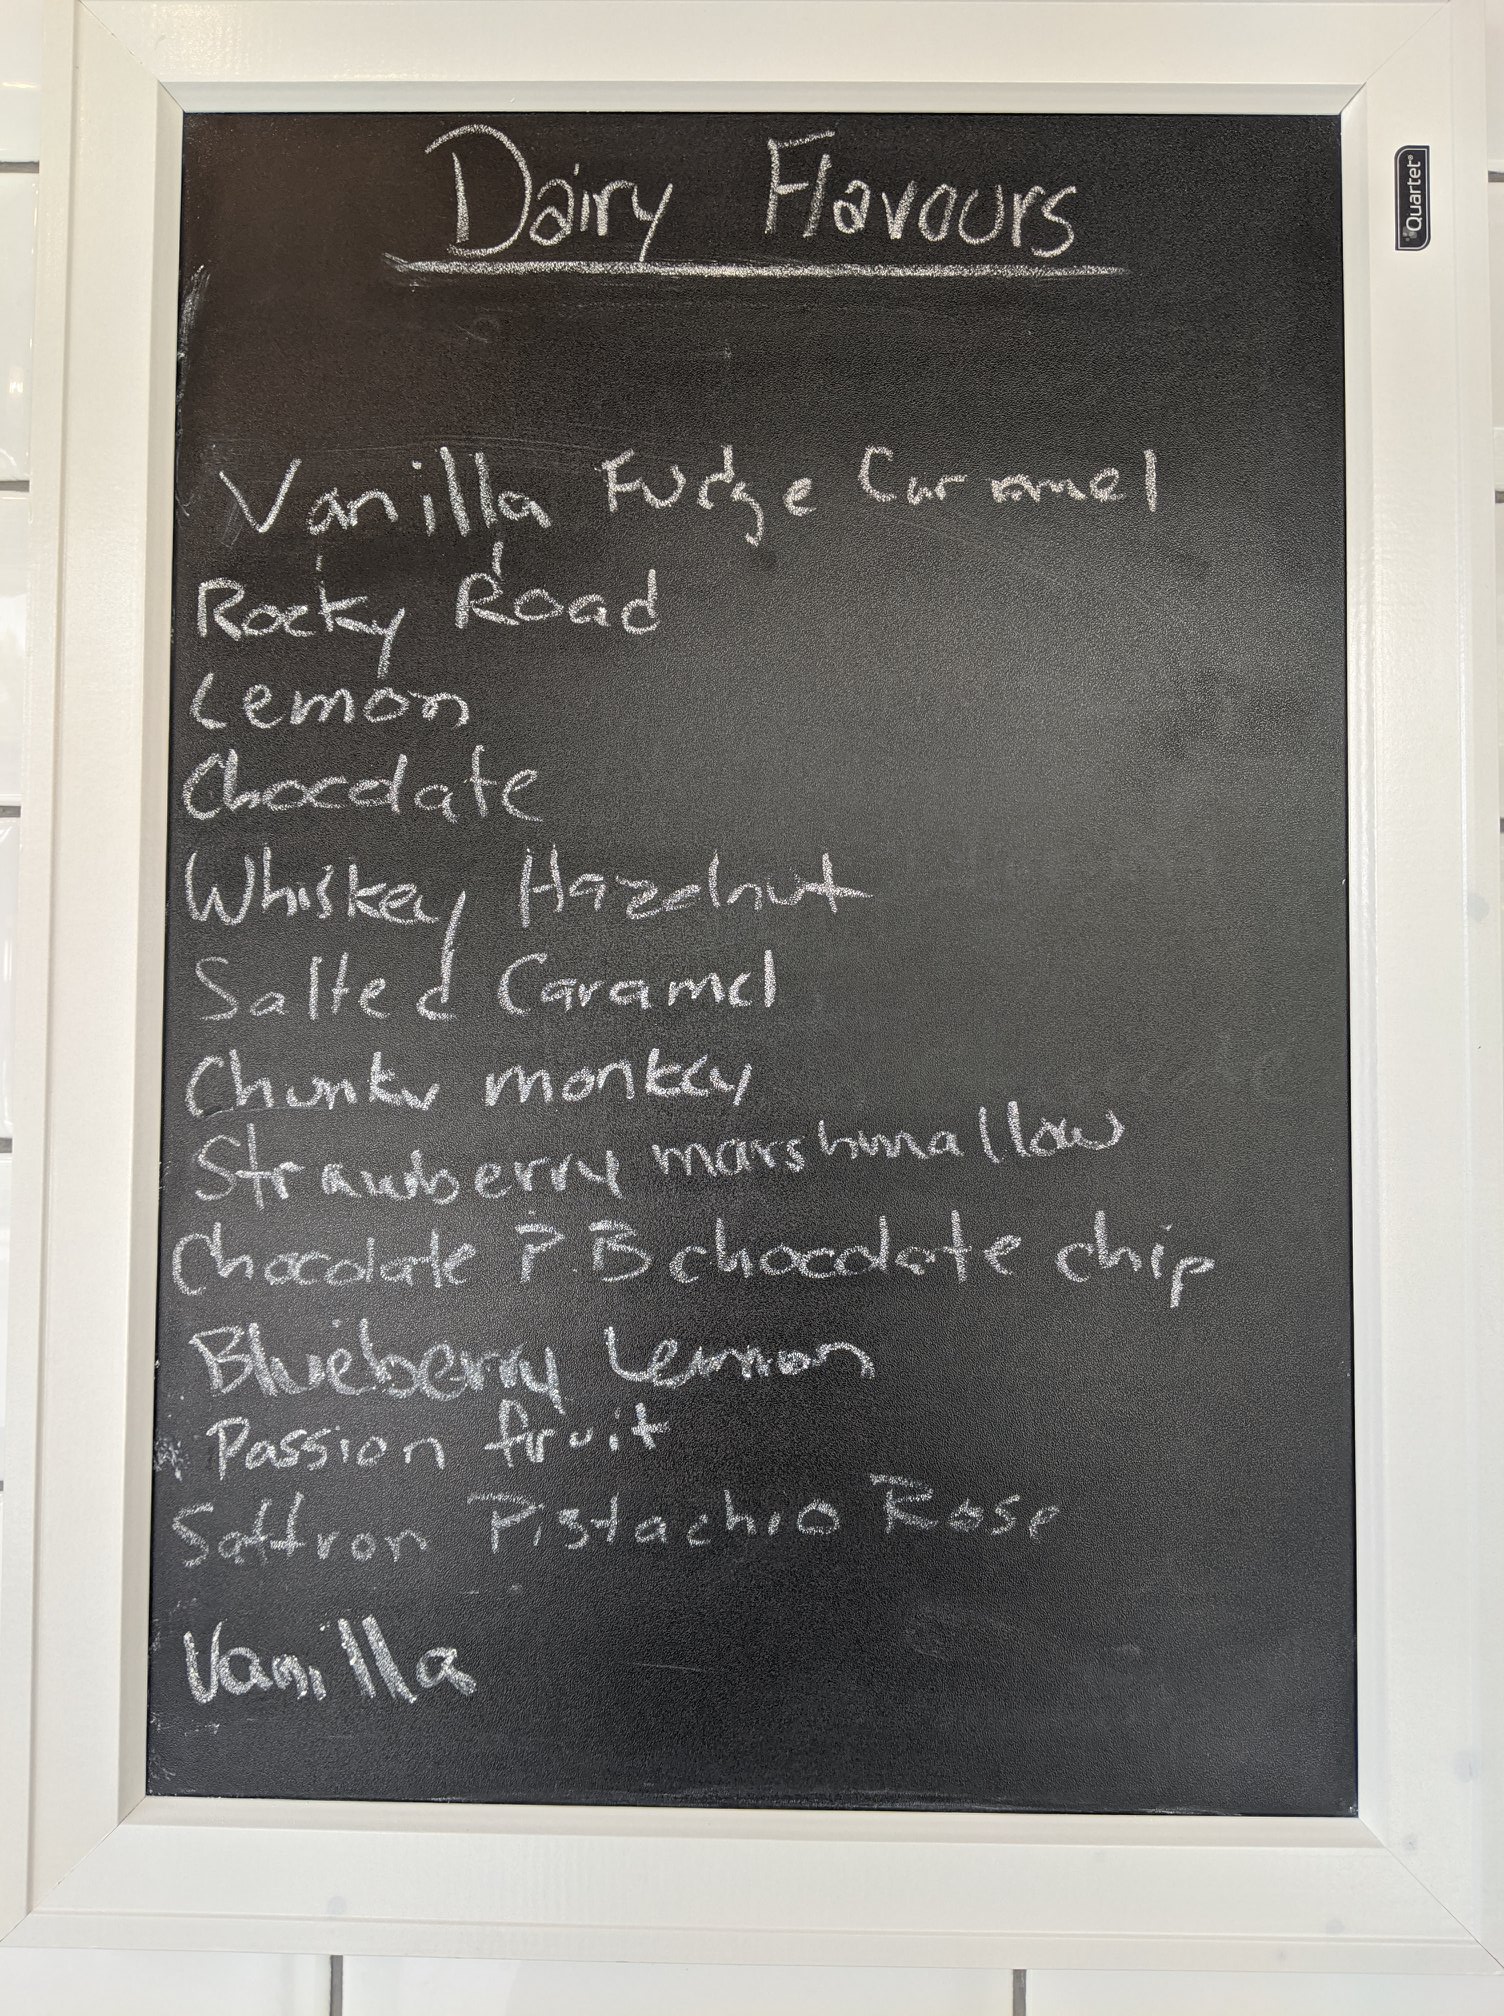 Dairy Flavours
Quartet
Vanilla Fudge Caramel
Rocky Road
Lemon
Chocolate
Whiskey Hazelnut
Salted Caramel
Chunky monkey
Strawberry marshmallow
Chocolate P B chocolate chip
Blueberry Lemon
Passion fruit
Saffron Pistachio Rose
Vanilla